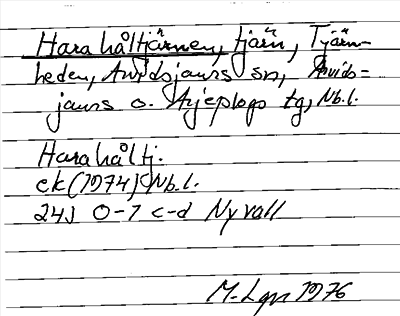 Harahåltjärnen, tjärn, Tjärn-
heden, Arvidsjaurs sn, Arvids=
jaurs o. Arjeplogs tg, Nb.l.
Harahåltj.
ek (1974) Nb.l.
24J 0-1 c-d Nyvall
M-Lgn 1976